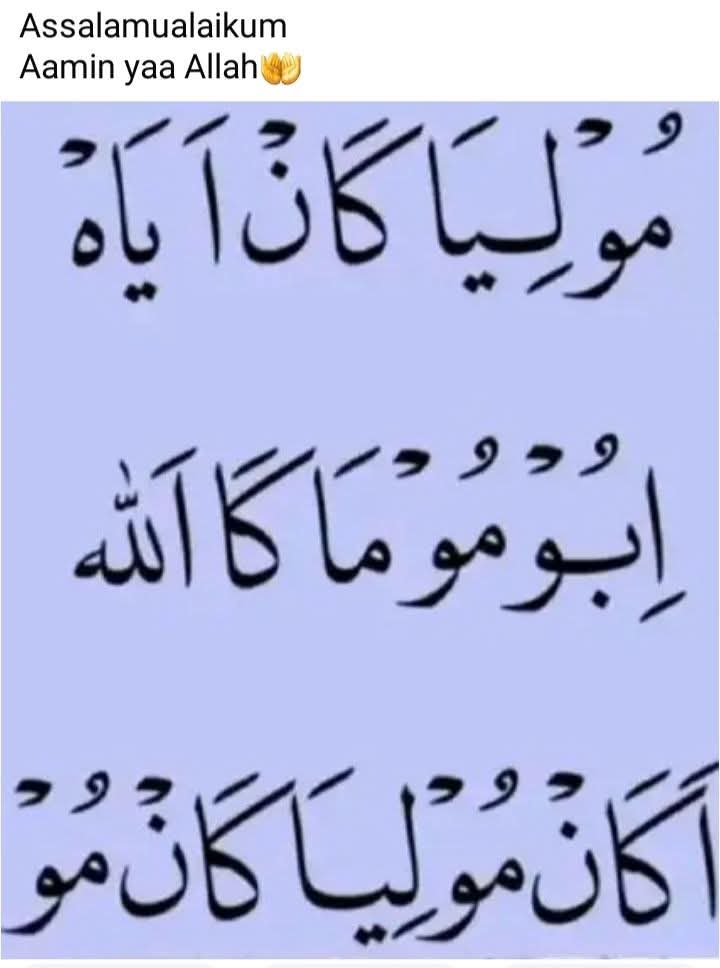 Assalamualaikum
Aamin yaa Allah🤲
مُوْلِيَا كَانْ اَيَاهْ
اِبُوْ مُوْ مَا كَا اَللّٰه
اَكَانْ مُوْلِيَا كَانْ مُوْ